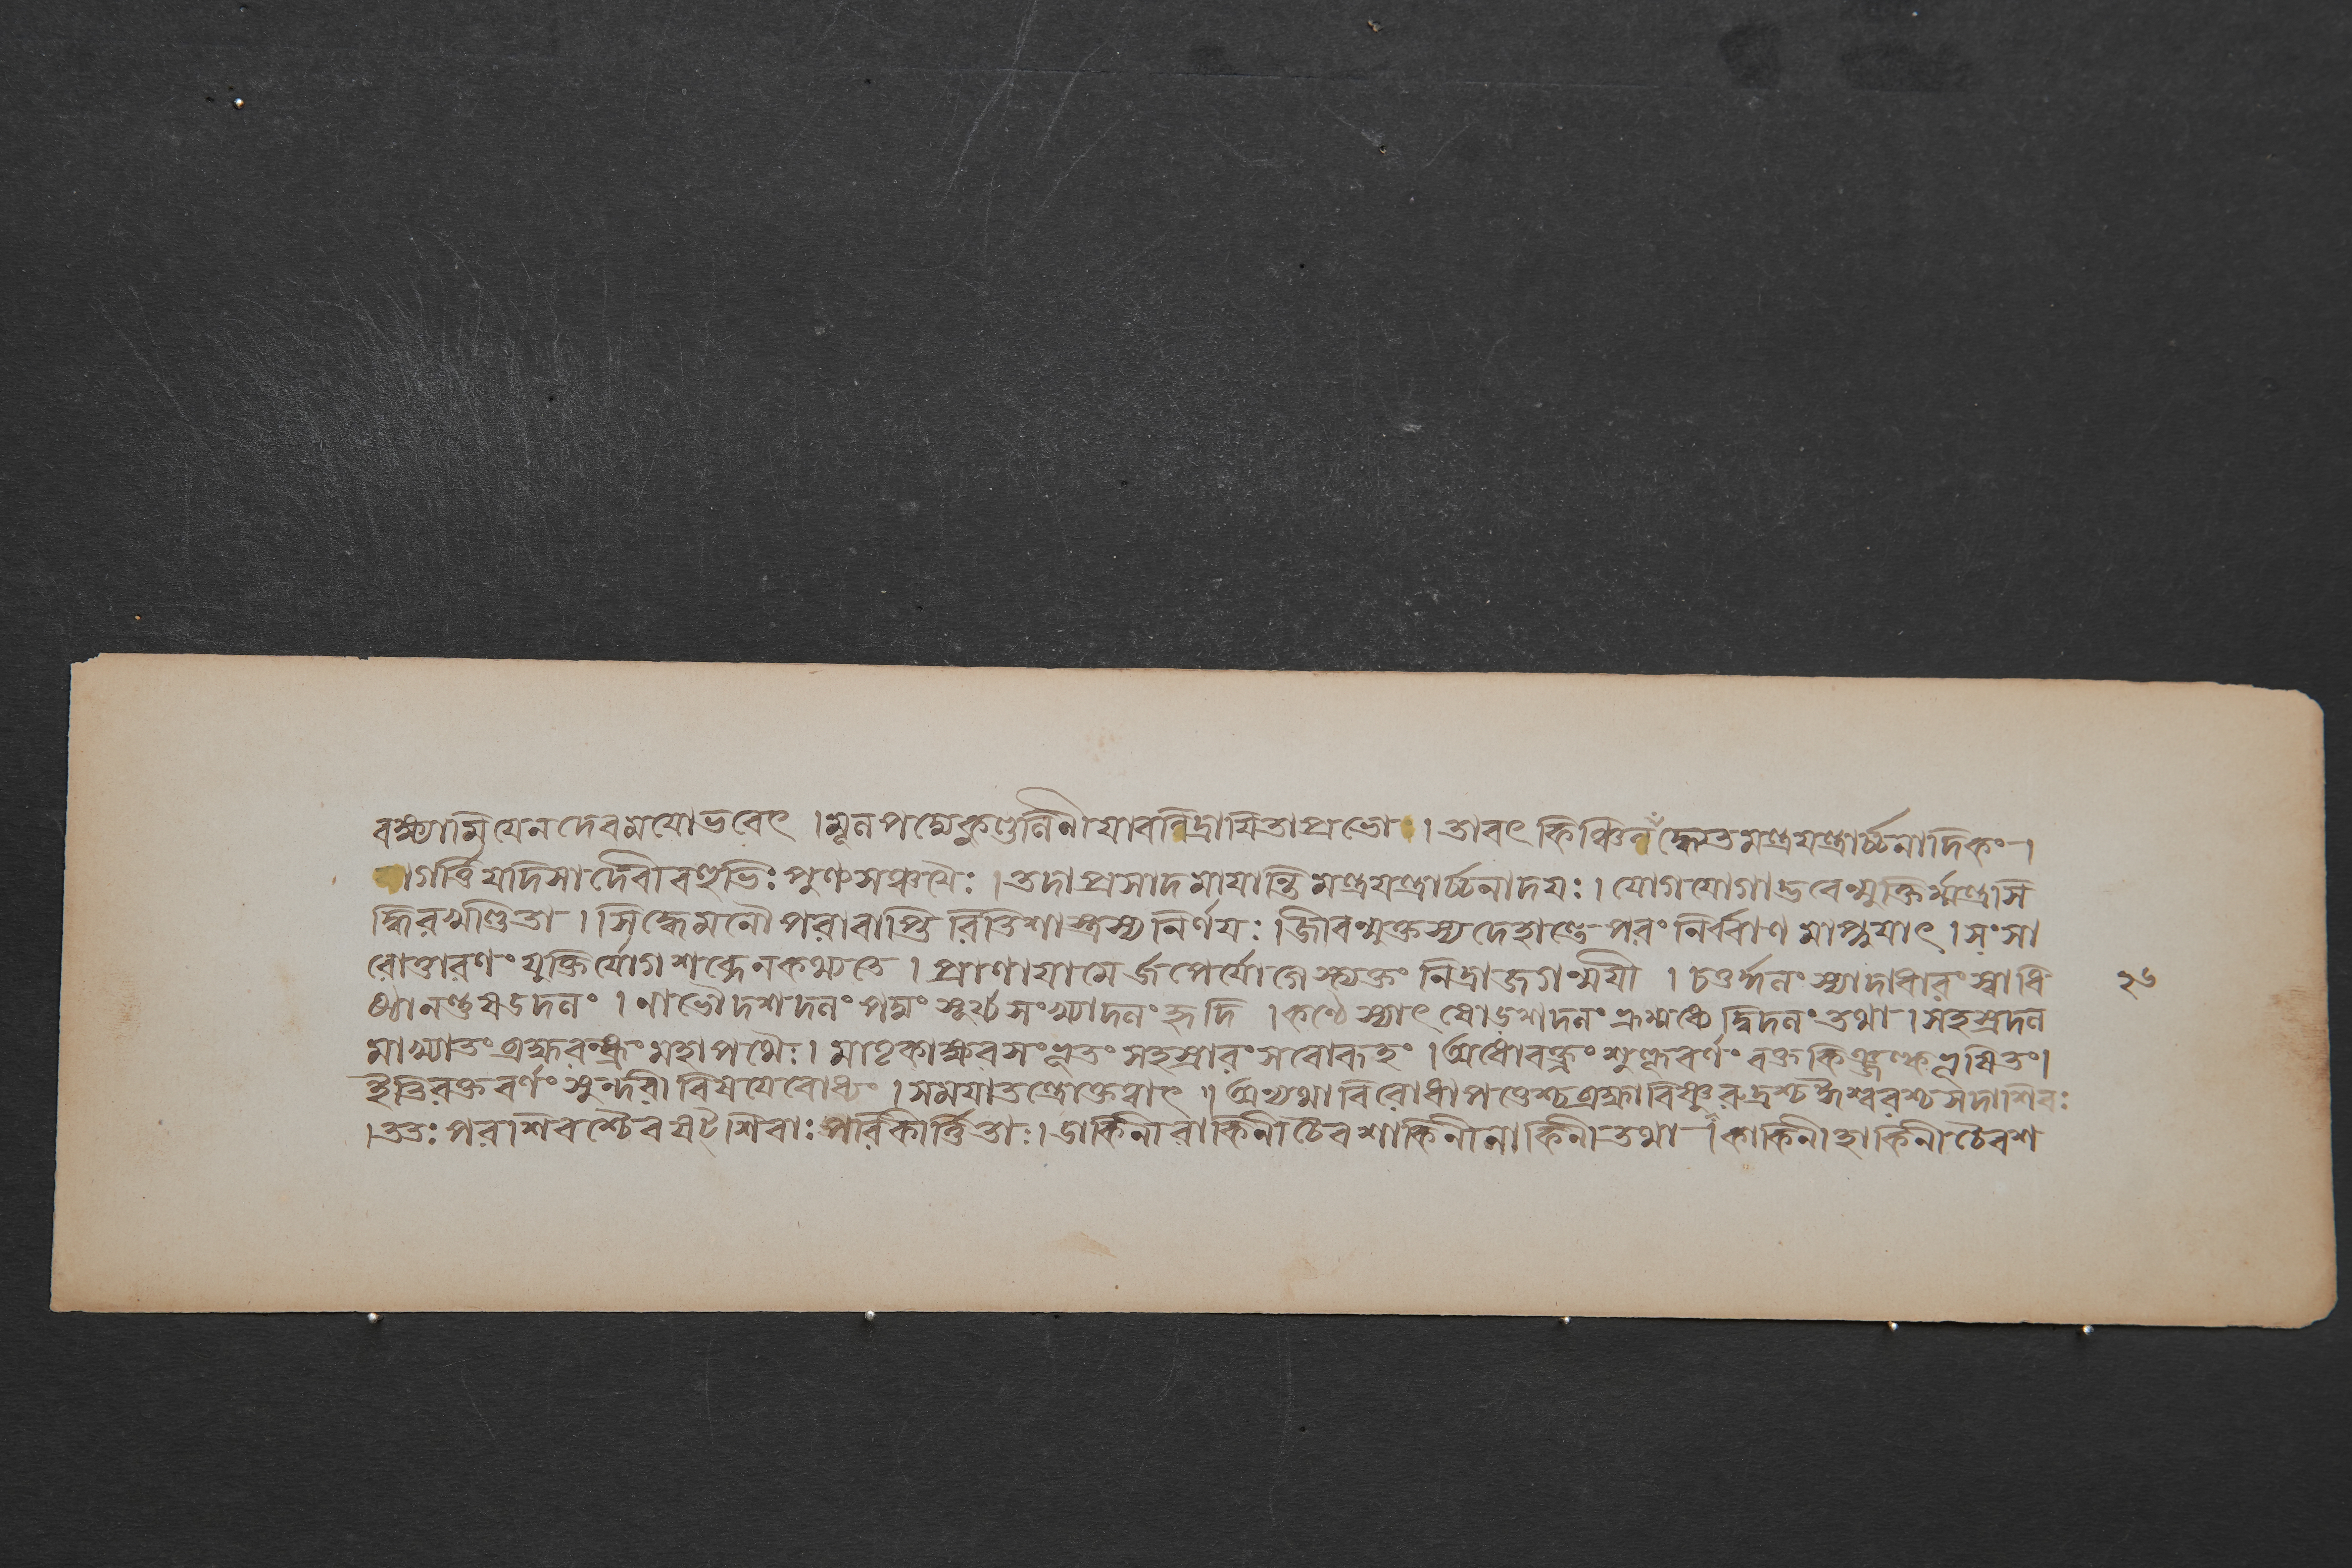 বক্ষ্যামি যেন দেবময়ো ভবেৎ । মূলপদ্মে কুণ্ডলিনী যাবন্নিদ্রায়িতা প্রভো । তাবৎ কিঞ্চিন্ন সিদ্ধ্যেত মন্ত্রযন্ত্রার্চ্চনাদিকং ।
জাগর্ত্তি যদি সা দেবী বহুভিঃ পুণ্যসঞ্চয়ৈঃ । তদা প্রসাদমায়ান্তি মন্ত্রযন্ত্রার্চ্চনাদয়ঃ । যোগযোগাদ্ভবেন্মুক্তির্ম্মন্ত্রসি
দ্ধিরখণ্ডিতা । সিদ্ধে মনৌ পরাবাপ্তিরিতি শাস্ত্রস্য নির্ণয়ঃ । জীবন্মুক্তস্য দেহান্তে পরং নির্ব্বাণমাপ্নুয়াৎ । সংসা
রোত্তারণং যুক্তির্যোগশব্দেন কথ্যতে । প্রাণায়ামের্জপের্যোগেস্ত্যক্তং নিদ্রা জগন্ময়ী । চতুর্দ্দলং স্যাদাধারং স্বাধি
২৬
ষ্ঠানন্তু ষড়্দলং । নাভৌ দশদলং পদ্মং সূর্য্যসংখ্যাদলং হৃদি । কণ্ঠে স্যাৎ ষোড়শদলং ভ্রূমধ্যে দ্বিদলং তথা । সহস্রদল
মাখ্যাতং ব্রহ্মরন্ধ্রং মহাপথৈঃ । মাতৃকাক্ষরসংপ্লুতং সহস্রারং সরোরুহং । অধোবক্ত্রং শুক্লবর্ণং রক্তকিঞ্জল্কভূষিতং ।
ইতি রক্তবর্ণং সুন্দরী বিষয়ে বোধ্যং । সময়াতন্ত্রোক্তেত্বাৎ ॥ অন্যথা বিরোধাপত্তেশ্চ ব্রহ্মা বিষ্ণুরুদ্রশ্চ ঈশ্বরশ্চ সদাশিবঃ
। ততঃ পরাশিবশ্চৈব ষট্‌শিবাঃ পরিকীর্ত্তিতাঃ । ডাকিনী রাকিনী চৈব শাকিনী লাকিনী তথা । কাকিনী হাকিনী চৈব শ